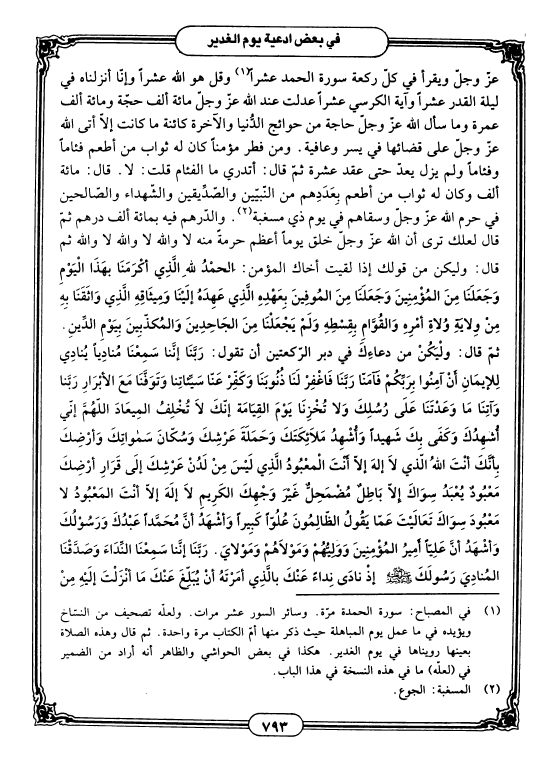 في بعض ادعية يوم الغدير
عزّ وجلّ ويقرأ في كلّ ركعة سورة الحمد عشراً(١) وقل هو الله عشراً وإنّا أنزلناه في
ليلة القدر عشراً وآية الكرسي عشراً عدلت عند الله عزّ وجلّ مائة ألف حجّة ومائة ألف
عمرة وما سأل الله عزّ وجلّ حاجة من حوائج الدُّنيا والآخرة كائنة ما كانت إلاّ أتى الله
عزّ وجلّ على قضائها في يسر وعافية. ومن فطر مؤمناً كان له ثواب من أطعم فئاماً
وفئاماً ولم يزل يعدّ حتى عقد عشرة ثمّ قال: أتدري ما الفئام قلت: لا. قال: مائة
ألف وكان له ثواب من أطعم بِعَدَدِهم من النبيّين والصِّديقين والشهداء والصّالحين
في حرم الله عزّ وجلّ وسقاهم في يوم ذي مسغبة(٢). والدّرهم فيه بمائة ألف درهم ثمّ
قال لعلك ترى أن الله عزّ وجلّ خلق يوماً أعظم حرمةً منه لا والله لا والله لا والله ثم
قال: وليكن من قولك إذا لقيت أخاك المؤمن: الحمْدُ للهِ الَّذي أكْرَمَنَا بهَذَا الْيَوْمِ
وَجَعَلَنَا مِنَ المُؤْمِنِينَ وَجَعَلَنَا مِنَ المُوفينَ بِعَهْدِهِ الَّذي عَهِدَهُ إلَيْنَا وَمِيثَاقِهِ الَّذي وَاثَقَنَا بِهِ
مِنْ وِلايَةِ وُلاةِ أمْرِهِ وَالقُوَّامِ بِقِسْطِهِ وَلَمْ يَجْعَلْنَا مِنَ الجَاحِدينَ وَالمُكذّبينَ بِيَوْمِ الدِّينِ.
ثمّ قال: ولْيَكُنْ من دعاءِكَ في دبر الرّكعتين أن تقول: رَبَّنَا إنَّنا سَمِعْنَا مُنادِياً يُنادِي
لِلإيمَانِ أنْ آمِنُوا بِرَبِّكُمْ فَآمَنَّا رَبَّنَا فَاغْفِرْ لَنَا ذُنُوبَنَا وَكَفِّرْ عَنَّا سَيِّئاتِنَا وَتَوَفَّنَا مَعَ الأبْرَارِ رَبَّنا
وَآتِنَا مَا وَعَدْتَنَا عَلَى رُسُلِكَ وَلا تُخْزِنَا يَوْمَ القِيَامَةِ إنَّكَ لاَ تُخْلِفُ المِيعَادَ اللّهُمَّ إنّي
أُشهِدُكَ وَكَفَى بِكَ شَهيداً وَأُشْهِدُ مَلاَئِكَتَكَ وَحَمَلَةَ عَرْشِكَ وَسُكّانَ سَمٰواتِكَ وَأرْضِكَ
بِأنَّكَ أنْتَ اللهُ الَّذي لاَ إلهَ إلاَّ أنْتَ الْمعْبُودُ الَّذي لَيْسَ مِنْ لَدُنْ عَرْشِكَ إلَى قَرَارِ أرْضِكَ
مَعْبُودٌ يُعْبَدُ سِوَاكَ إلاَّ بَاطِلٌ مُضْمَحِلٌّ غَيْرَ وَجْهِكَ الكَرِيمِ لاَ إلهَ إلاَّ أنْتَ المَعْبُودُ لا
مَعْبُودَ سِوَاكَ تَعَالَيْتَ عَمّا يَقُولُ الظّالِمُونَ عُلُوّاً كَبيراً وَأشْهَدُ أنَّ مُحَمَّداً عَبْدُكَ وَرَسُولُكَ
وَأشْهَدُ أنَّ عَلِيّاً أمِيرُ المُؤْمِنينَ وَوَلِيُّهُمْ وَمَوْلاَهُمْ وَمَوْلايَ. رَبَّنَا إنَّنا سَمِعْنَا النِّدَاءَ وَصَدَّقْنَا
المُنادِيَ رَسُولَكَ ﷺ إذْ نادَى نِداءً عَنْكَ بالَّذي أمَرْتَهُ أنْ يُبَلِّغَ عَنْكَ مَا أنْزَلْتَ إلَيْهِ مِنْ
(١) في المصباح: سورة الحمدة مرّة. وسائر السور عشر مرات. ولعلّه تصحيف من النسّاخ
ويؤيده في ما عمل يوم المباهلة حيث ذكر منها أمّ الكتاب مرة واحدة. ثم قال وهذه الصلاة
بعينها رويناها في يوم الغدير. هكذا في بعض الحواشي والظاهر أنه أراد من الضمير
في (لعلّه) ما في هذه النسخة في هذا الباب.
(٢) المسغبة: الجوع.
٧٩٣